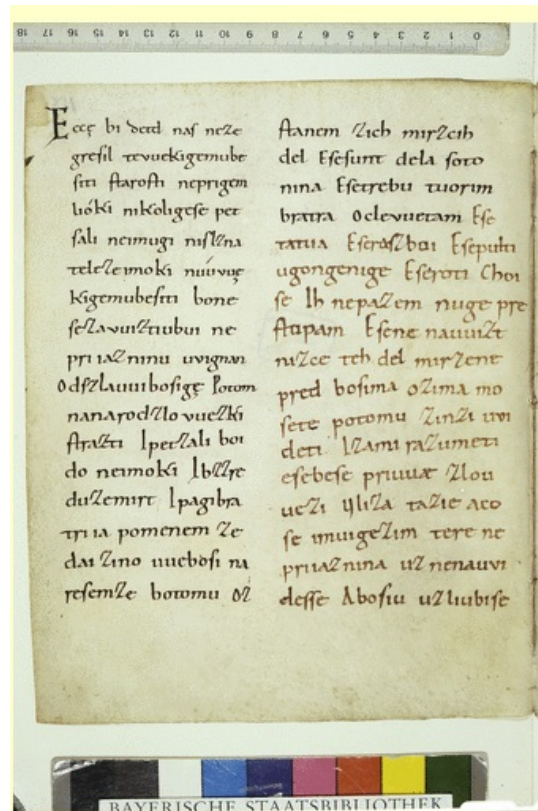 18 17 16 15 14 13 12 11 10 9 8 7 6 5 4 3 2 1 0
Eccę bi detd naſ neze
greſil tevuekigemube
ſiti ſtaroſti neprigem
lióki nikoligeſe pet
ſali neimugi niſlzna
telezeimoki nuúvuę
kigemubeſiti bone
ſezavuiztiubui ne
priiazninu uvignan
Odſzlauuiboſigę Potom
nanarodzlovuezki
ſtrazti Ipetzali boi
do neimoki Ibzzre
duzemirt Ipagibra
triia pomenem ze
dai zino uuebóſi na
reſemze botomu oz
ſtanem zich mirzcih
del Eſeſunt dela ſoto
nina Eſetrebu tuorim
bratra Oclevuetam Eſe
tatua Eſerazboi Eſepulti
ugongenige Eſeroti Choi
ſe Ih nepazem nuge pre
ſtupam Eſene nauuizt
nizce teh del mirzene
pred boſima ozima mo
ſete potomu zinzi uvi
deti Izami razumeti
eſebeſe priuuæ zlou
uezi Uliza tazie aco
ſe imuigezim tere ne
priiaznina uznenauvi
deſſe Aboſiu uzliubiſe
BAYERISCHE STAATSBIBLIOTHEK